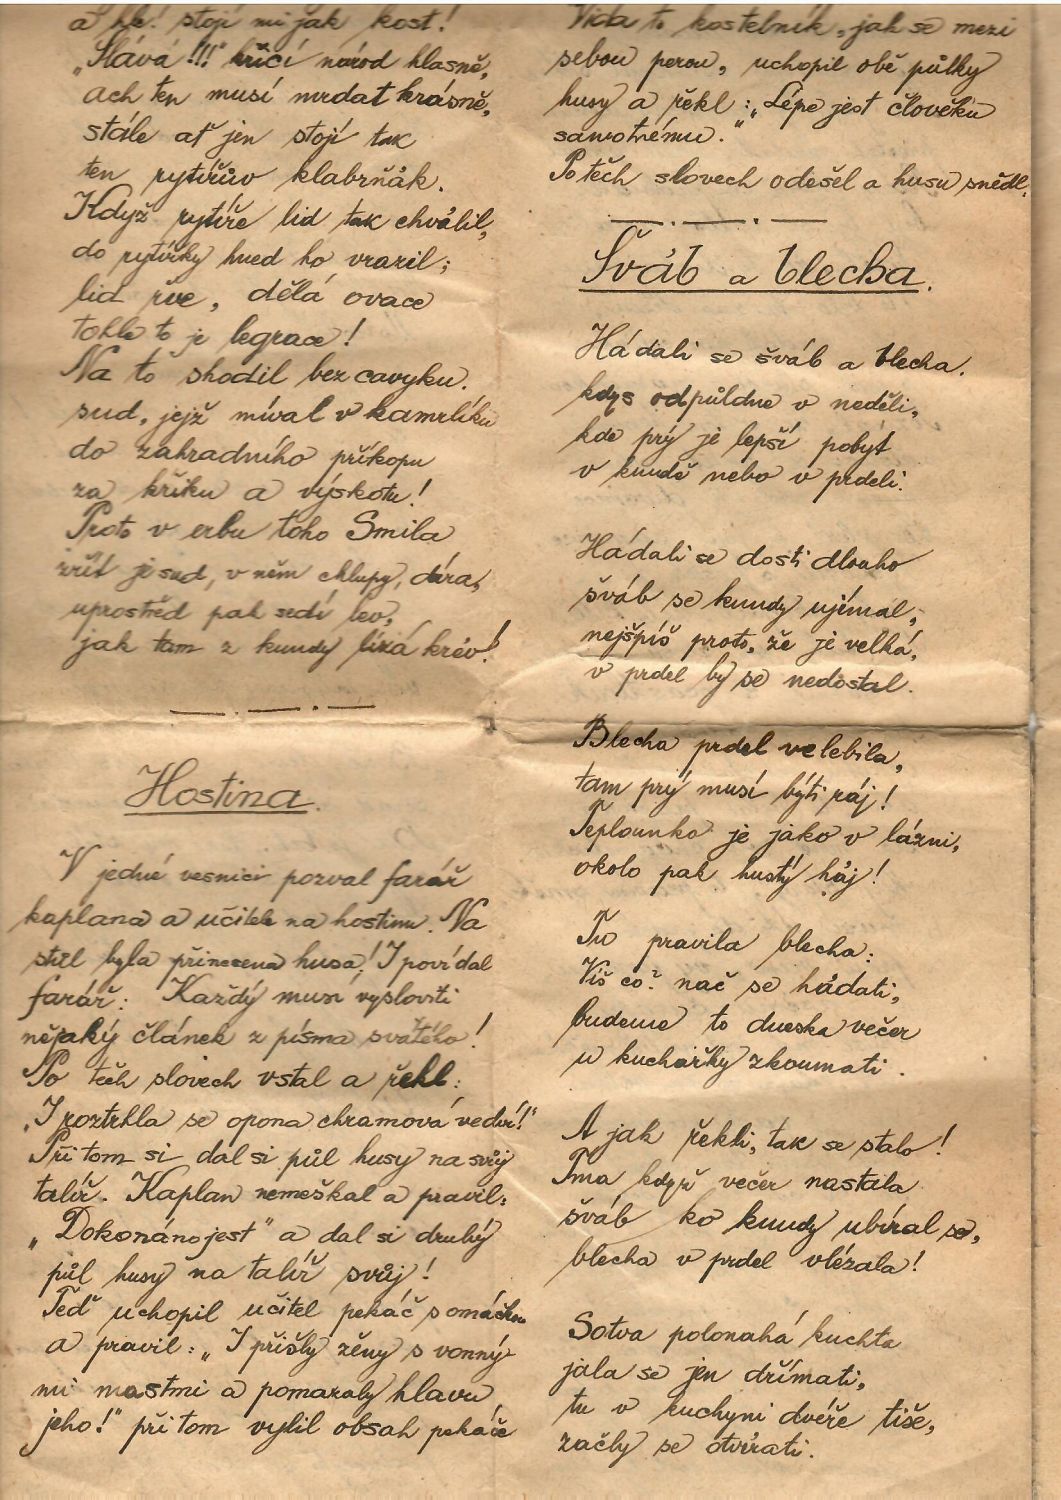 a hle! stojí mi jak kost!
„Sláva!!!" křičí národ hlasně,
ach ten musí mrdat krásně,
stále ať jen stojí tak
ten rytířův klabrňák.
Když rytíře lid tak chválil,
do rytířky hned ho vrazil;
lid řve, dělá ovace
tohle to je legrace!
Na to shodil bez cavyku.
sud, jejž míval v kamrlíku
do zahradního příkopu
za křiku a výskotu!
Proto v erbu toho Smila
zřít je sud, v něm chlupy, díra,
uprostřed pak sedí lev,
jak tam z kundy lízá krév!
Hostina.
V jedné vesnici pozval farář
kaplana a učitele na hostinu. Na
stůl byla přinesena husa! I povídal
farář: Každý musí vysloviti
nějaký článek z písma svatého!
Po těch slovech vstal a řekl:
„I roztrhla se opona chramová ve dví!"
Při tom si dal si půl husy na svůj
talíř. Kaplan nemeškal a pravil:
„Dokonáno jest" a dal si druhý
půl husy na talíř svůj!
Teď uchopil učitel pekáč s omáčkou
a pravil: „I přišly ženy s vonný-
mi mastmi a pomazaly hlavu
jeho!" při tom vylil obsah pekáče
Vida to kostelník, jak se mezi
sebou perou, uchopil obě půlky
husy a řekl: „Lépe jest člověku
samotnému."
Po těch slovech odešel a husu snědl.
Šváb a blecha.
Hádali se šváb a blecha.
kdys odpůldne v neděli,
kde prý je lepší pobýt
v kundě nebo v prdeli.
Hádali se dosti dlouho
šváb se kundy ujímal,
nejspíš proto, že je velká,
v prdel by se nedostal.
Blecha prdel velebila,
tam prý musí býti ráj!
Teplounko je jako v lázni,
okolo pak hustý háj!
Tu pravila blecha:
Víš co? nač se hádati,
budeme to dneska večer
u kuchařky zkoumati.
A jak řekli, tak se stalo!
Tma když večer nastala
šváb ko kundy ubíral se,
blecha v prdel vlézala!
Sotva polonahá kuchta
jala se jen dřímati,
tu v kuchyni dvéře tiše,
začly se otvírati.